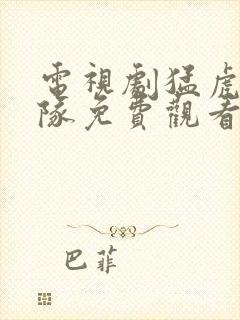 電視劇猛虎
隊免費觀看
巴菲